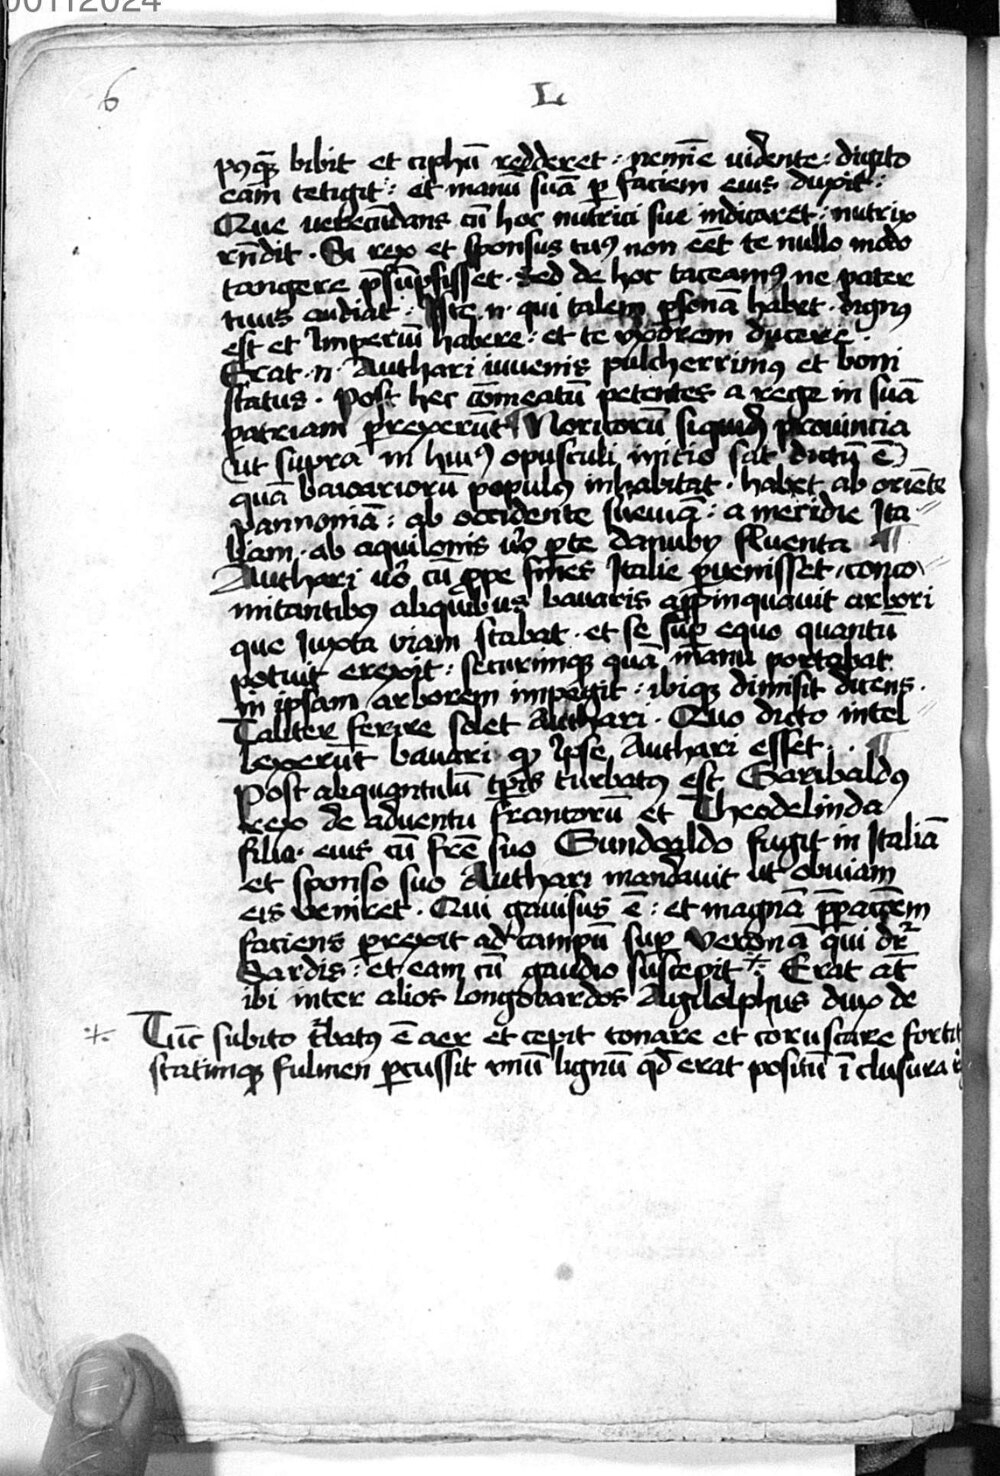 00112024
6
L
pꝰqꝫ bibit et ciphū redderet : nemīe uidente : digito
eam tetigit : et manū suā p faciem eius duxit :
Que uerecūdans cū hoc nutrici sue indicaret : nutrix
rn̄dit . Si rex et sponsus tuꝰ non eēt te nullo modo
tangere p̄sūpsisset . sed de hoc taceamꝰ ne pater
tuus audiat . Iste .n. qui talem psonā habet . dignꝰ
est et Imperiū habere : et te vxorem ducere .
Erat .n. Authari iuuenis pulcherrimꝰ et boni
status . Post hec cōmeatū petentes a rege in suā
patriam prexerūt ¶ Noricorū siquidē prouincia
(ut supra in huiꝰ opusculi initio sat dictū ē)
quā baioariorū populꝰ inhabitat . habet ab oriēte
pannoniā : ab occidente sueuiā : a meridie Ita
liam . ab aquilonis uo pte danuby fluenta ¶
Authari uo cū ppe fines Italie puenisset conco
mitantibꝰ aliquibus bauaris appinquauit arbori
que Iuxta viam stabat . et se sup equo quantū
potuit erexit : securimqꝫ quā manu portabat
in ipsam arborem impegit : ibiqꝫ dimisit dicens .
Taliter ferire solet Authari . Quo dicto intel
lexerūt bauari ꝙ Ipse Authari esset . ¶
Post aliquantulū tpis turbatꝰ est Garibaldꝰ
rex de aduentu francorū et Theodelinda
filia eius cū frē suo Gundoaldo fugit in Italiā
et sponso suo Authari mandauit ut obuiam
eis veniret . Qui gauisus ē : et magnā ppacōem
faciens prexit ad campū sup Veronā qui dr̄
Sardis : et eam cū gaudio suscepit ⁜ Erat at̄
ibi inter alios longobardos Agilolphus dux de
⁜ Tūc subito tbatꝰ ē aer et cepit tonare et coruscare fortit
statimqꝫ fulmen pcussit vnū lignū qd̄ erat positū ī clusura